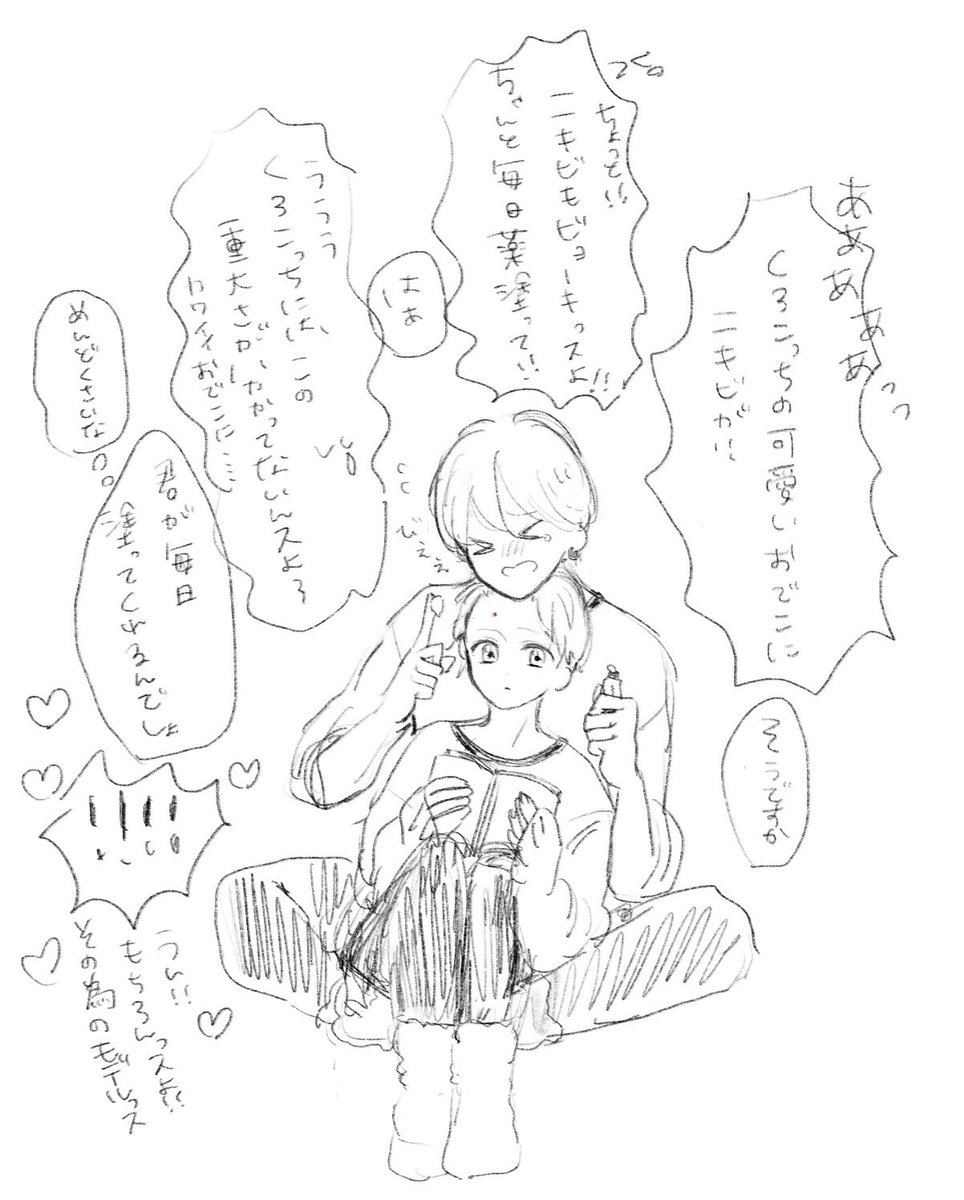 ああああああっっ
くろこっちの可愛いおでこに
ニキビが!!
そうですか
ちょっと!!
ニキビもビョーキっスよ!!
ちゃんと毎日薬塗って!!
はぁ
ううう
くろこっちには、この
重大さがわかってないんスよろ
カワイイおでこに…
めんどくさいな
びええ
君が毎日
塗ってくれるんでしょ
!!!!
うい!!
もちろんっスよ!!
その為のモデルっス